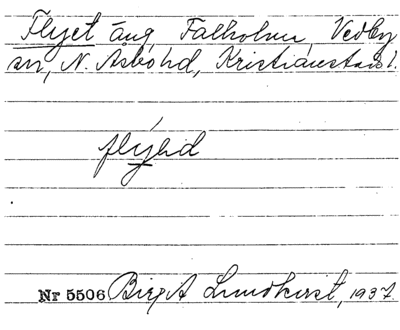 Flyet äng, Falholma, Vedby
sn, N. Åsbo hd, Kristianstads l.
flýəd
Nr 5506 Birgit Lundkvist, 1937.